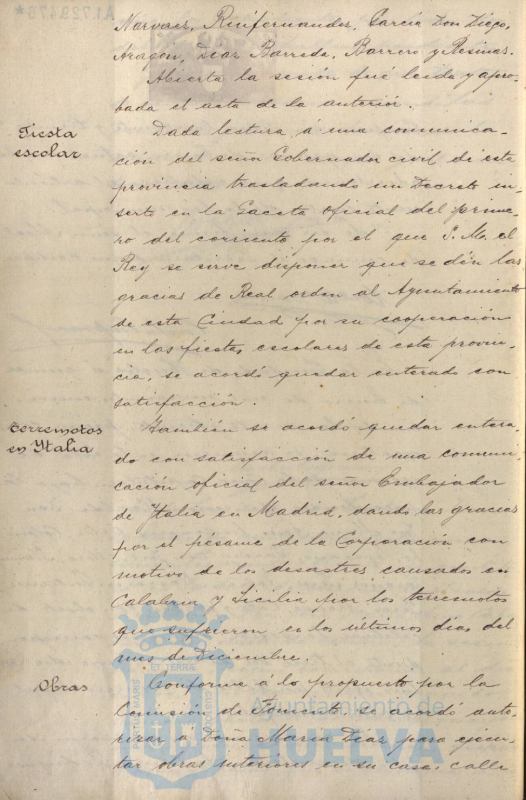 A1729476*
Narvaez, Ruifernandez, García Don Diego,
Aragón, Diaz Barreda, Barrero y Resinas.
Abierta la sesión fué leida y apro-
bada el acta de la anterior.
Fiesta
escolar
Dada lectura á una comunica-
ción del señor Gobernador civil de esta
provincia trasladando un Decreto in-
serto en la Gaceta oficial del prime-
ro del corriente por el que S. M. el
Rey se sirve disponer que se dén las
gracias de Real orden al Ayuntamiento
de esta Ciudad por su cooperación
en las fiestas escolares de esta provin-
cia, se acordó quedar enterado con
satisfacción.
Terremotos
en Ytalia
También se acordó quedar entera-
do con satisfacción de una comuni-
cación oficial del señor Embajador
de Ytalia en Madrid, dando las gracias
por el pésame de la Corporación con
motivo de los desastres causados en
Calabria y Sicilia por los terremotos
que sufrieron en los últimos días del
mes de Diciembre.
Obras
Conforme á lo propuesto por la
Comisión de Fomento, se acordó auto-
rizar a Doña María Diaz para ejecu-
tar obras interiores en su casa, calle
PORTUS MARIS ET TERRÆ CUSTODIA
Ayuntamiento de
HUELVA